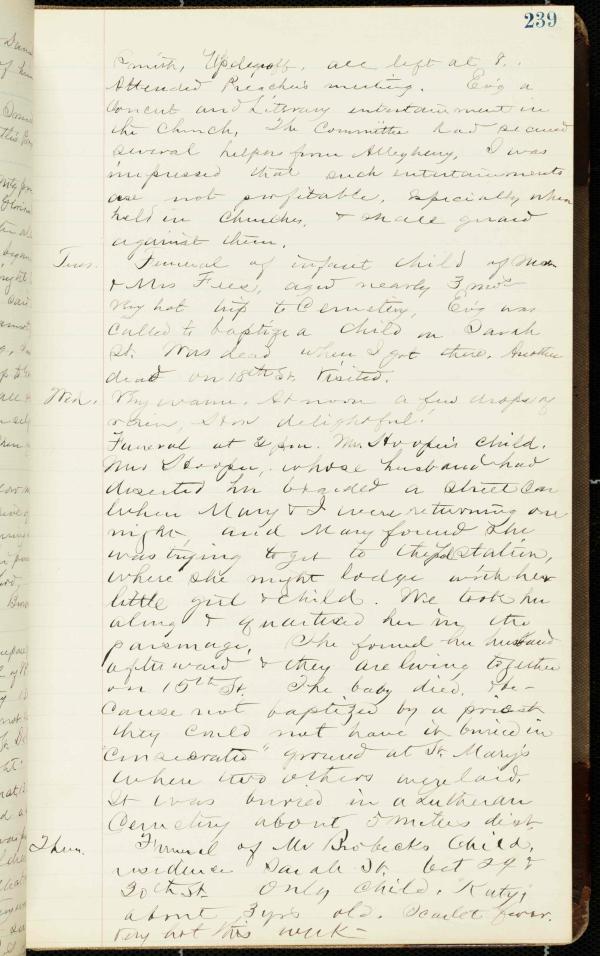 239
Smith, Updegraff, all left at 8.
Attended Preachers meeting. Ev'g a
Concert and Literary entertainment in
the Church. The Committee had secured
several helpers from Allegheny. I was
impressed that such entertainments
are not profitable, especially when
held in Churches, & shall guard
against them.
Tues. Funeral of infant child of Mr
& Mrs Fees, aged nearly 3 mos
Very hot trip to Cemetery. Ev'g was
Called to baptize a child on Sarah
St. Was dead when I got there. Another
dead on 18th St. Visited.
Wed. Very warm. At noon a few drops of
rain, How delightful!
Funeral at 2 pm. Mrs Hooper's child.
Mrs Hooper, whose husband had
deserted her boarded a street Car
when Mary & I were returning one
night, and Mary found she
was trying to get to the station,
where she might lodge with her
little girl & child. We took her
along & quartered her in the
parsonage. She found her husband
afterward & they are living together
on 15th St. The baby died. & be-
cause not baptized by a priest
they could not have it buried in
"Consecrated" ground at St. Mary's
where two others were laid.
It was buried in a Lutheran
Cemetery about 5 miles dist.
Thur. Funeral of Mr Brobecks Child,
residence Sarah St. bet 29 &
30th St. Only child, "Katy",
about 3 yrs old. Scarlet fever.
Very hot this week—